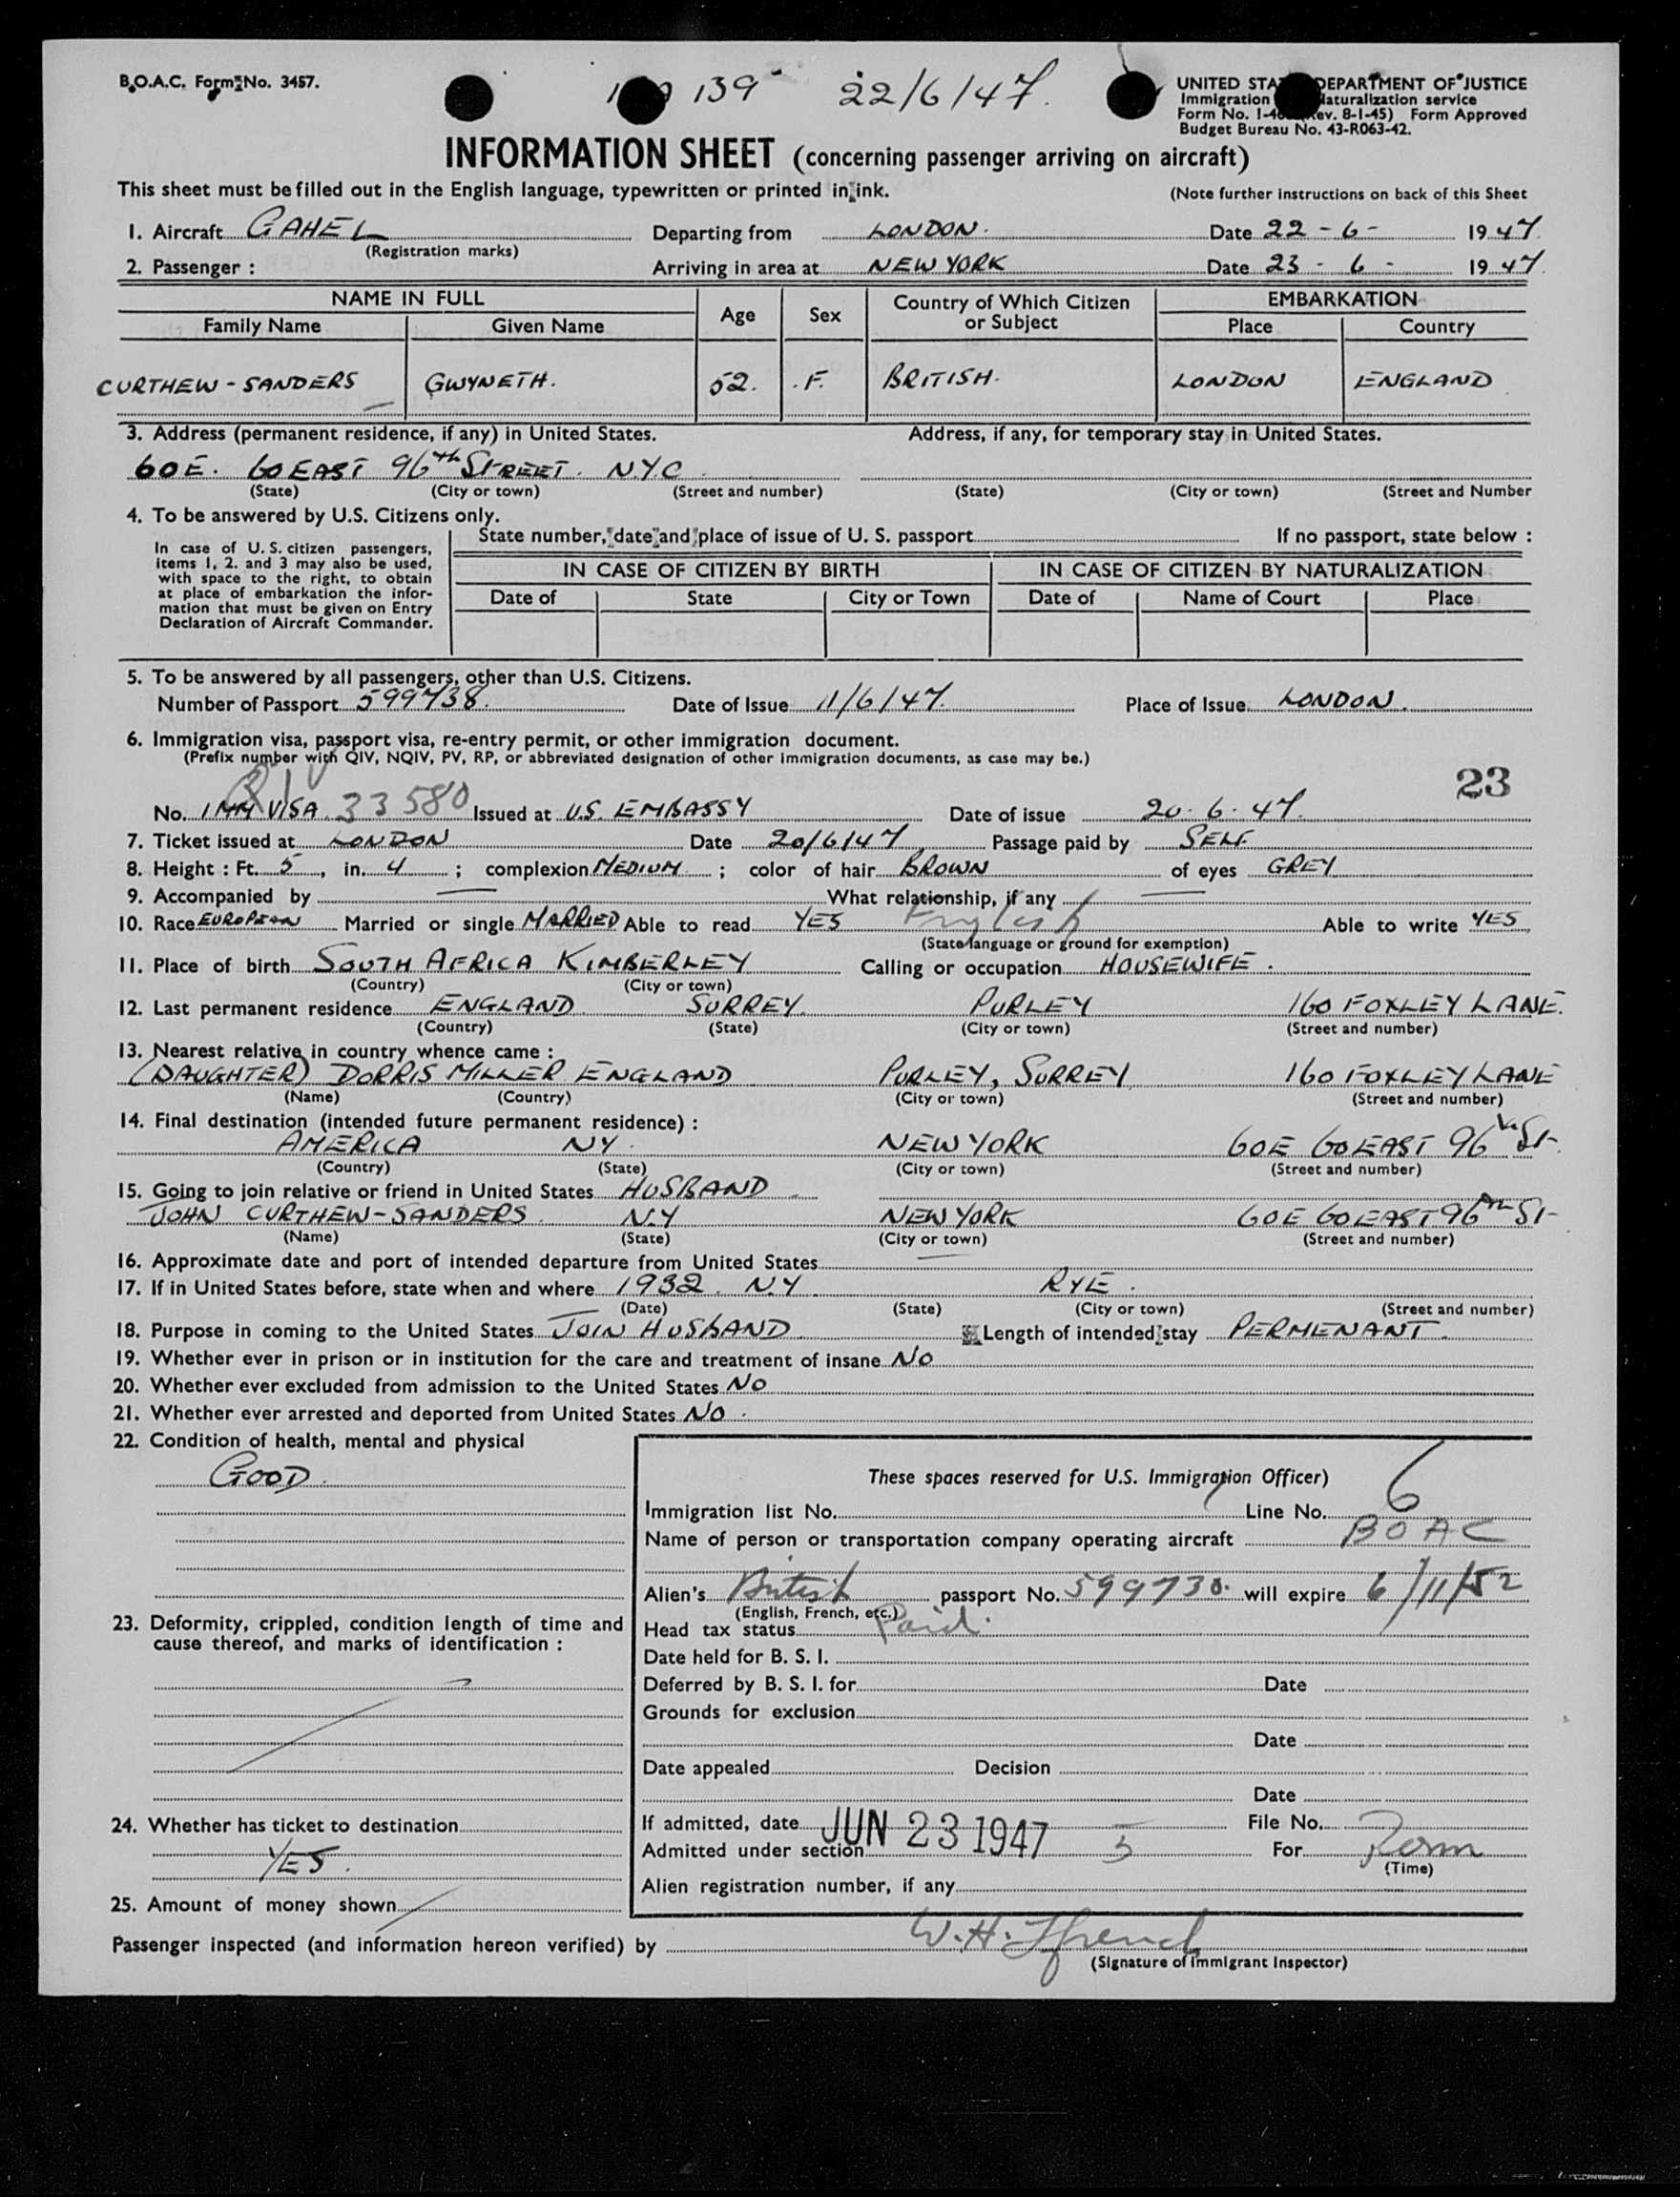 B.O.A.C. Form No. 3457.
139 22/6/47.
UNITED STA DEPARTMENT OF JUSTICE
Immigration aturalization service
Form No. 1-4 ev. 8-1-45) Form Approved
Budget Bureau No. 43-R063-42.
INFORMATION SHEET (concerning passenger arriving on aircraft)
This sheet must be filled out in the English language, typewritten or printed in ink. (Note further instructions on back of this Sheet
1. Aircraft GAHEL Departing from LONDON. Date 22 - 6 - 1947.
(Registration marks)
2. Passenger : Arriving in area at NEW YORK Date 23 - 6 - 1947.
NAME IN FULL Age Sex Country of Which Citizen or Subject EMBARKATION
Family Name Given Name Place Country
CURTHEW - SANDERS GWYNETH. 52. F. BRITISH. LONDON ENGLAND
3. Address (permanent residence, if any) in United States. Address, if any, for temporary stay in United States.
60E. 60 EAST 96th STREET. N.Y.C
(State) (City or town) (Street and number) (State) (City or town) (Street and Number
4. To be answered by U.S. Citizens only.
State number, date and place of issue of U. S. passport If no passport, state below :
In case of U. S. citizen passengers,
items 1, 2. and 3 may also be used,
with space to the right, to obtain
at place of embarkation the infor-
mation that must be given on Entry
Declaration of Aircraft Commander.
IN CASE OF CITIZEN BY BIRTH IN CASE OF CITIZEN BY NATURALIZATION
Date of State City or Town Date of Name of Court Place
5. To be answered by all passengers, other than U.S. Citizens.
Number of Passport 599738. Date of Issue 11/6/47. Place of Issue LONDON.
6. Immigration visa, passport visa, re-entry permit, or other immigration document.
(Prefix number with QIV, NQIV, PV, RP, or abbreviated designation of other immigration documents, as case may be.)
23
QIV
No. IMM VISA 33580 Issued at U.S. EMBASSY Date of issue 20. 6. 47.
7. Ticket issued at LONDON Date 20/6/47 Passage paid by SELF.
8. Height : Ft. 5, in. 4 ; complexion MEDIUM ; color of hair BROWN of eyes GREY
9. Accompanied by — What relationship, if any —
10. Race EUROPEAN Married or single MARRIED Able to read YES English Able to write YES
(State language or ground for exemption)
11. Place of birth SOUTH AFRICA KIMBERLEY Calling or occupation HOUSEWIFE.
(Country) (City or town)
12. Last permanent residence ENGLAND SURREY. PURLEY 160 FOXLEY LANE.
(Country) (State) (City or town) (Street and number)
13. Nearest relative in country whence came :
(DAUGHTER) DORRIS MILLER ENGLAND PURLEY, SURREY 160 FOXLEY LANE
(Name) (Country) (City or town) (Street and number)
14. Final destination (intended future permanent residence) :
AMERICA NY. NEW YORK 60E 60 EAST 96th St.
(Country) (State) (City or town) (Street and number)
15. Going to join relative or friend in United States HUSBAND.
JOHN CURTHEW-SANDERS. N.Y NEW YORK 60E 60 EAST 96th St
(Name) (State) (City or town) (Street and number)
16. Approximate date and port of intended departure from United States —
17. If in United States before, state when and where 1932. N.Y. RYE.
(Date) (State) (City or town) (Street and number)
18. Purpose in coming to the United States JOIN HUSBAND. Length of intended stay PERMENANT.
19. Whether ever in prison or in institution for the care and treatment of insane NO
20. Whether ever excluded from admission to the United States NO
21. Whether ever arrested and deported from United States NO.
22. Condition of health, mental and physical
GOOD.
These spaces reserved for U.S. Immigration Officer)
Immigration list No. Line No. 6
Name of person or transportation company operating aircraft BOAC
Alien's British passport No. 599738. will expire 6/11/52
(English, French, etc.)
Head tax status Paid.
Date held for B. S. I.
Deferred by B. S. I. for Date
Grounds for exclusion
Date
Date appealed Decision
Date
If admitted, date JUN 23 1947 File No.
Admitted under section 5 For Perm
(Time)
Alien registration number, if any
23. Deformity, crippled, condition length of time and
cause thereof, and marks of identification :
24. Whether has ticket to destination
YES.
25. Amount of money shown
Passenger inspected (and information hereon verified) by W. H. Ffrench
(Signature of Immigrant Inspector)